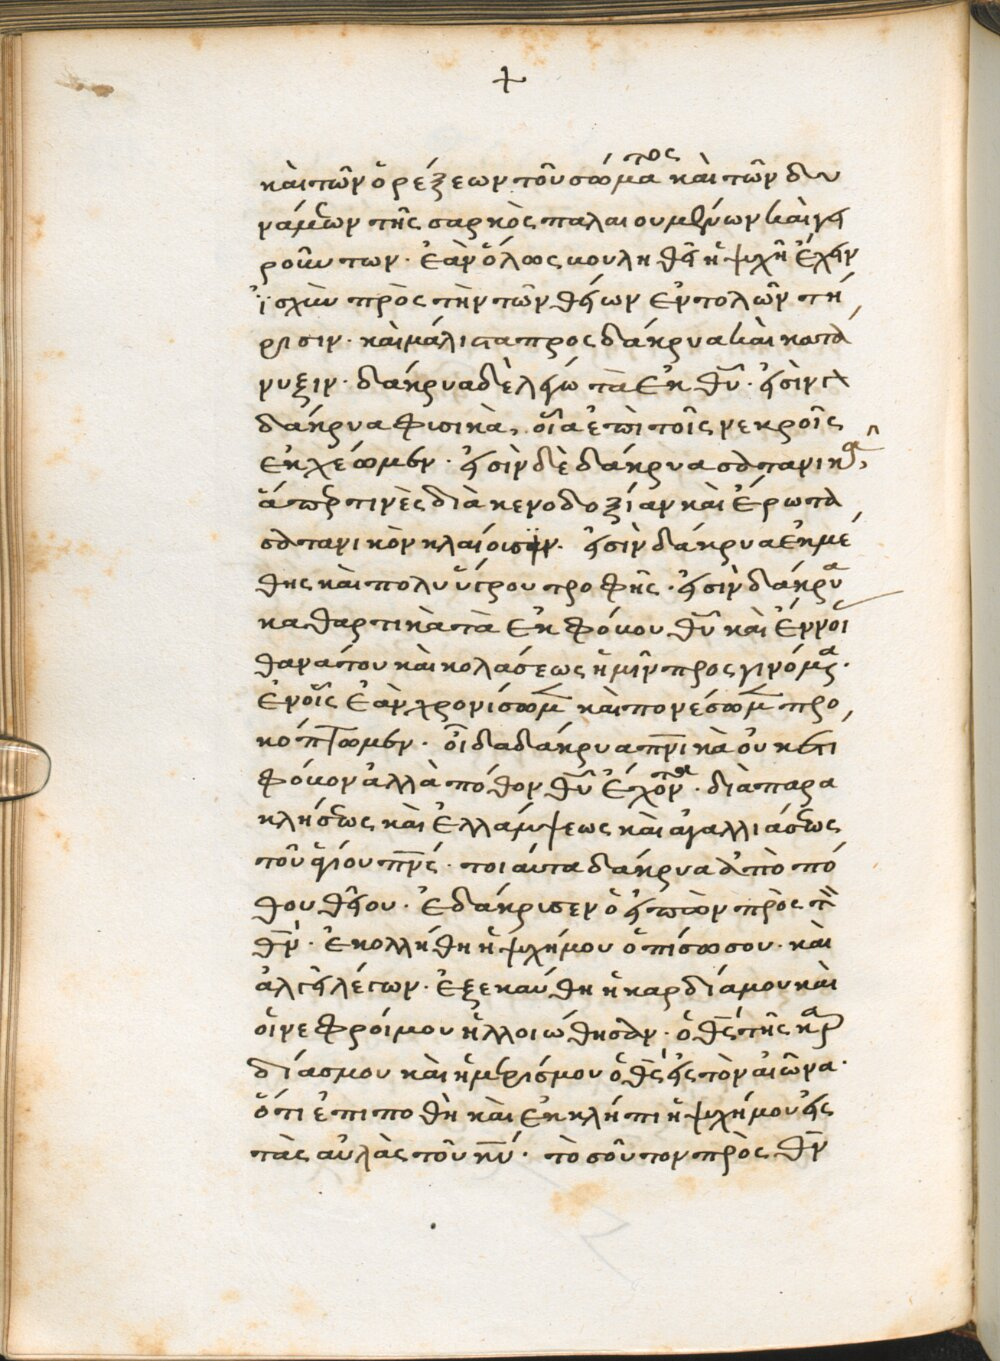 +
καὶ τῶν ὀρέξεων τοῦ σώματος καὶ τῶν δυ
νάμεων τῆς σαρκὸς παλαιουμένων καὶ γη
ρούντων· ἐὰν ὅλως βουληθῆ ἡ ψχὴ ἔχειν
ἰσχὺν πρὸς τὴν τῶν θείων ἐντολῶν τή
ρισιν· καὶ μάλιστα προς δάκρυα καὶ κατά
νυξιν· δάκρυα δὲ λέγω τὰ ἐκ θῦ· εἰσὶν
δάκρυα φισικὰ, οἷα ἐπὶ τοῖς νεκροῖς
ἐκχέωμεν· εἰσὶν δὲ δάκρυα σατανικὰ,
ἅπερ τινὲς διὰ κενοδοξίαν καὶ ἔρωτα
σατανικὸν κλαίοισιν· εἰσὶν δάκρυα ἐκ μέ
θης καὶ πολυὑέρου τροφῆς· εἰσὶν δάκρυα
καθαρτικὰ τὰ ἐκ φόβου θῦ καὶ ἐννοί
θανάτου καὶ κολάσεως ἡμῖν προςγινόμενα·
ἐν οἷς ἐὰν χρονίσωμεν καὶ πονέσωμεν προ
κόπτωμεν· οἷδα δάκρυα πνικὰ οὐκέτι
φόβον ἀλλὰ πόθον θῦ ἔχοντα· διὰ παρα
κλήσεως καὶ ἐλλάμψεως καὶ ἀγαλλιάσεως
τοῦ ἁγίου πνς· τοιαύτα δάκρυα ἀπὸ πό
θου θείου· ἐδάκρισεν ὁ εἰπὼν πρὸς τὸν
θν· ἐκολλήθη ἡ ψχή μου ὀπίσω σου· καὶ
ἀλ λέγων· ἐξεκαύθη ἡ καρδία μου καὶ
οἱ νεφροί μου ἠλλοιώθησαν· ὁ θς τῆς καρ
δίασ μου καὶ ἡ μερίς μου ὁ θς εἰς τὸν αἰῶνα·
ὅτι ἐπιποθὴ καὶ ἐκκλήπι ἡ ψχή μου εἰς
τὰς αὐλὰς τοῦ κυ· τὸσοῦτον πρὸς θν